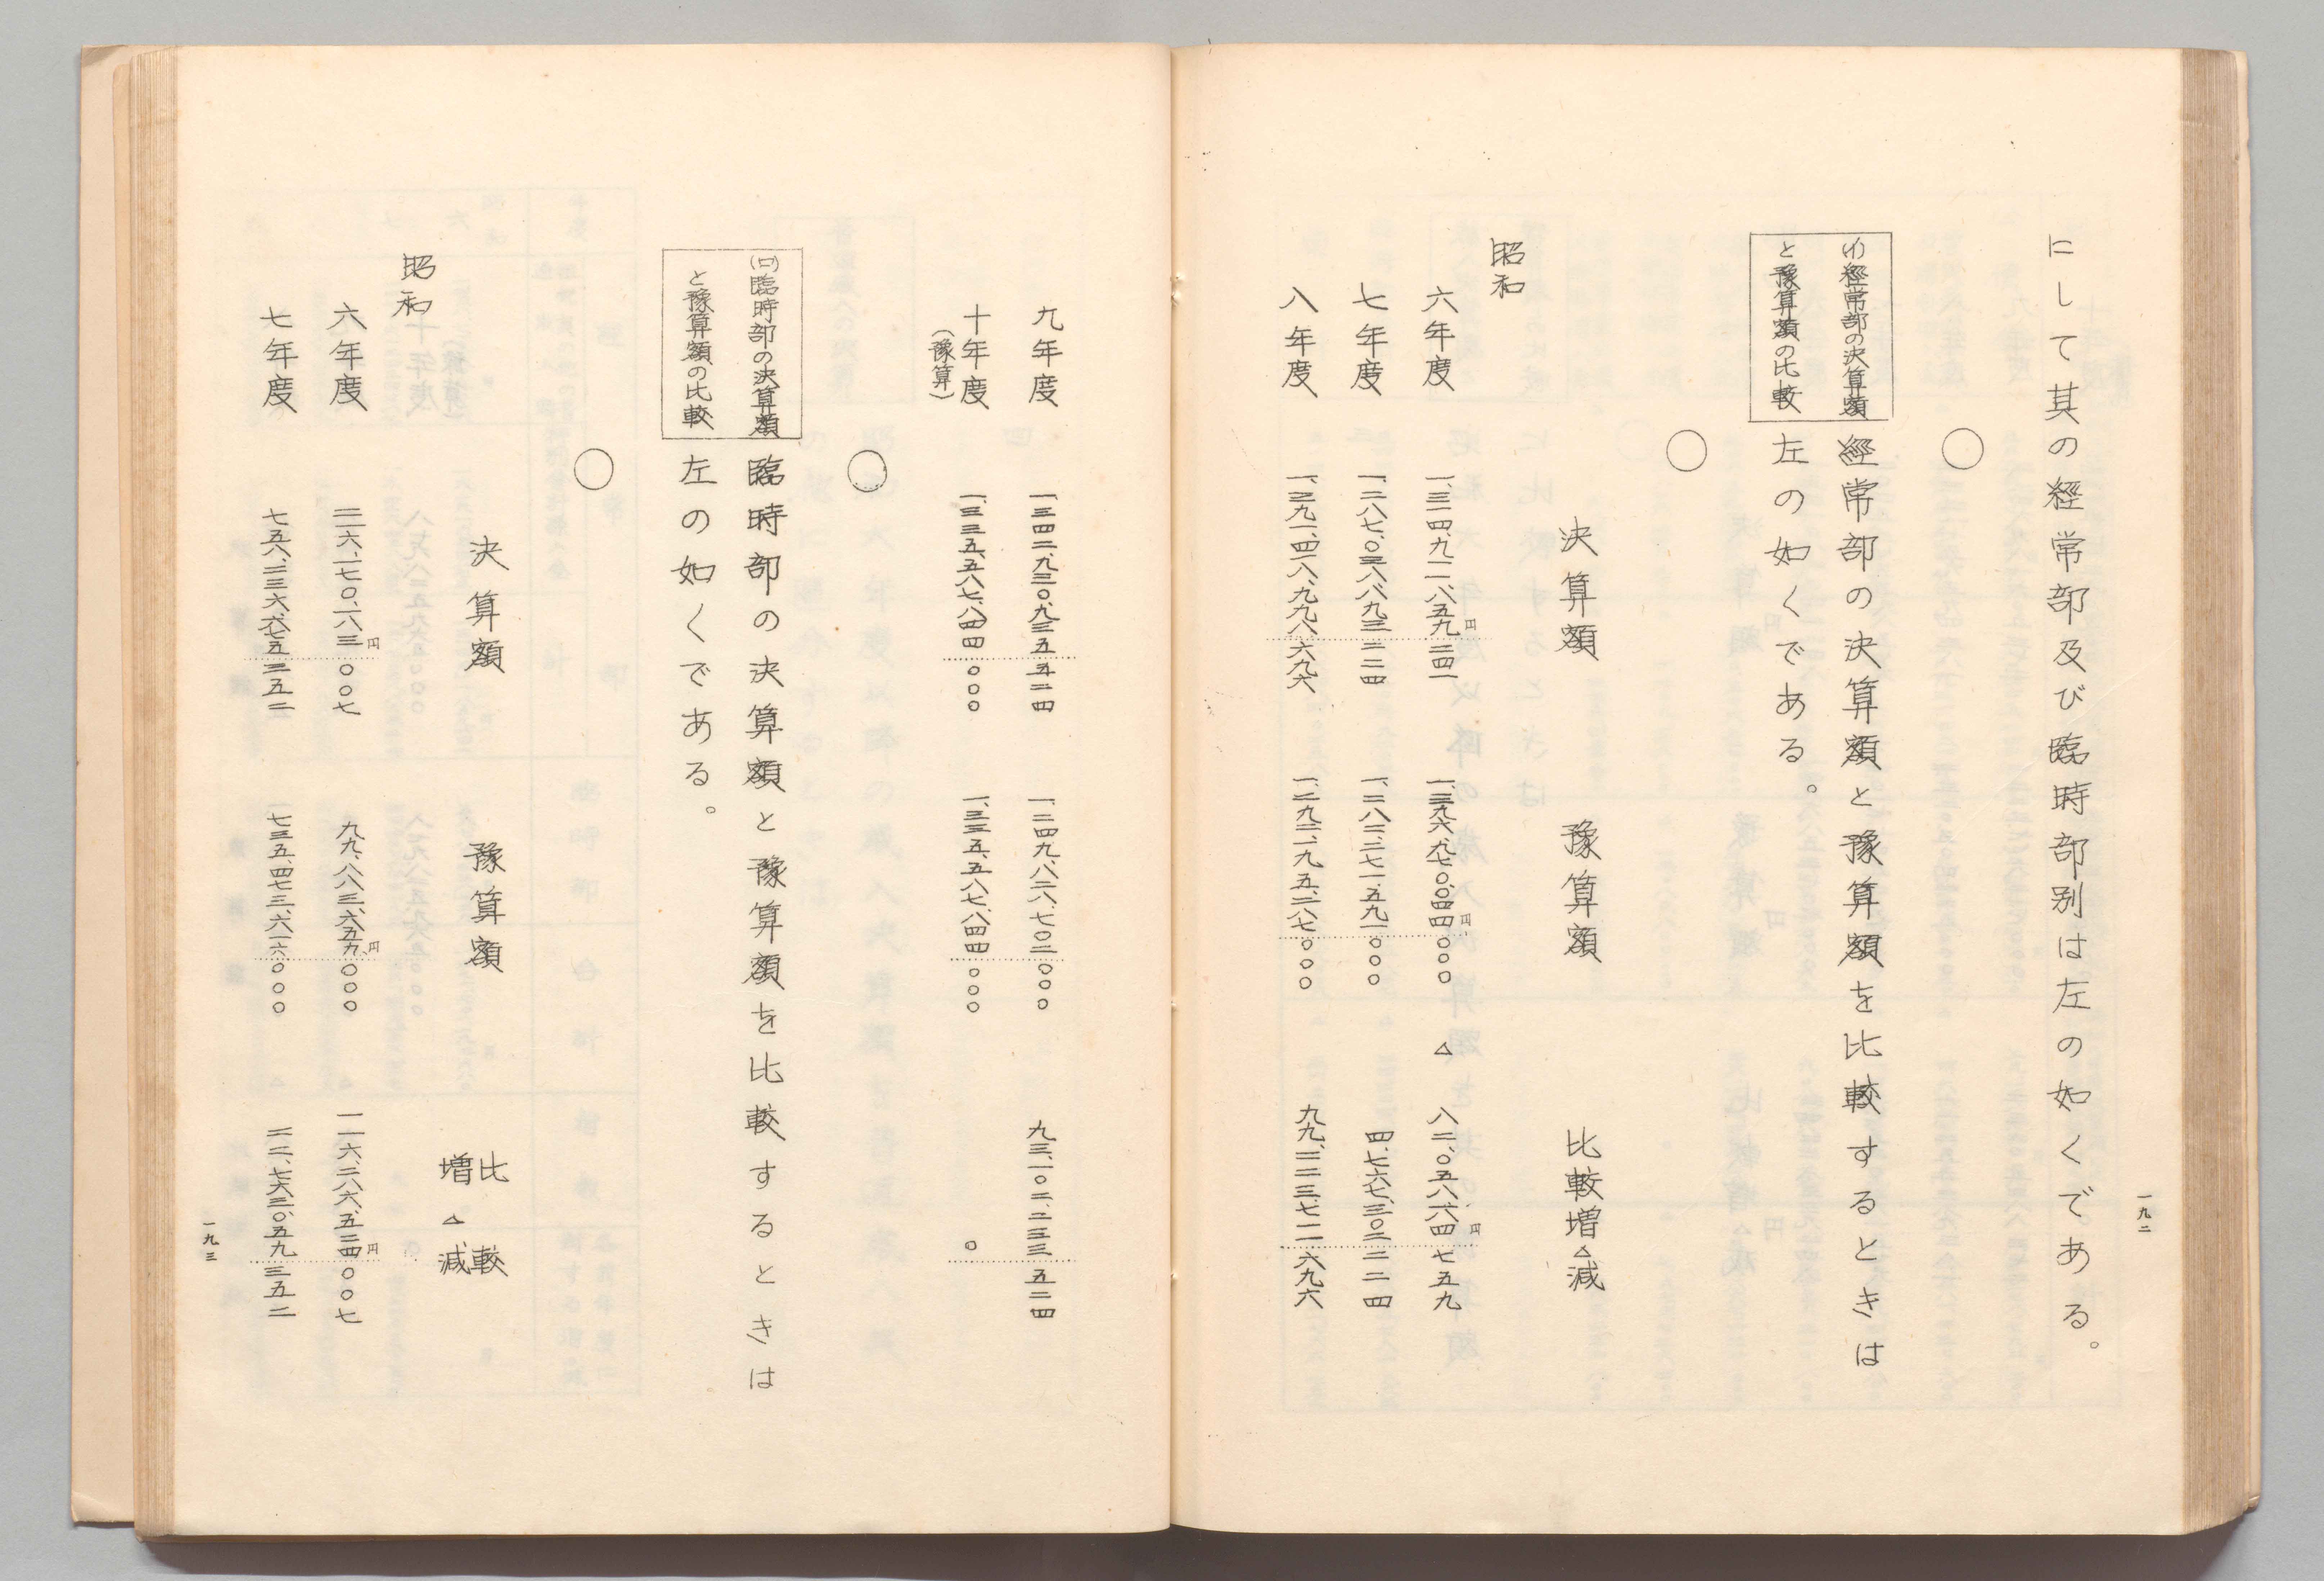 一九二
にして其の經常部及び臨時部別は左の如くである。
○
(イ)經常部の決算額
と豫算額の比較
經常部の決算額と豫算額を比較するときは
左の如くである。
○
決算額 豫算額 比較増△減
昭和
六年度 一、三一四、九一一、八五九円二四一 一、三九六、九七〇、〇四四円〇〇〇 △ 八二、〇五八、一八四円七五九
七年度 一、二八七、〇三八、八九三二二四 一、二八二、二七一、五九一〇〇〇 四、七六七、三〇二二二四
八年度 一、三九一、四一八、九九八六九六 一、二九二、一九五、二八七〇〇〇 九九、二二三、七一一六九六
九年度 一、三四二、九三〇、九三五五二四 一、二四九、八二八、七〇二〇〇〇 九三、一〇二、二三三五二四
十年度 一、三三五、五八七、八四四〇〇〇 一、三三五、五八七、八四四〇〇〇 〇
(豫算)
○
(ロ)臨時部の決算額
と豫算額の比較
臨時部の決算額と豫算額を比較するときは
左の如くである。
○
決算額 豫算額 比較
増△減
昭和
六年度 二一六、一七〇、一八三円〇〇七 九九、八八三、六五九円〇〇〇 一一六、二八六、五二四円〇〇七
七年度 七五八、二三六、六七五三五二 七三五、四七三、六一六〇〇〇 二二、七六三、〇五九三五二
一九三